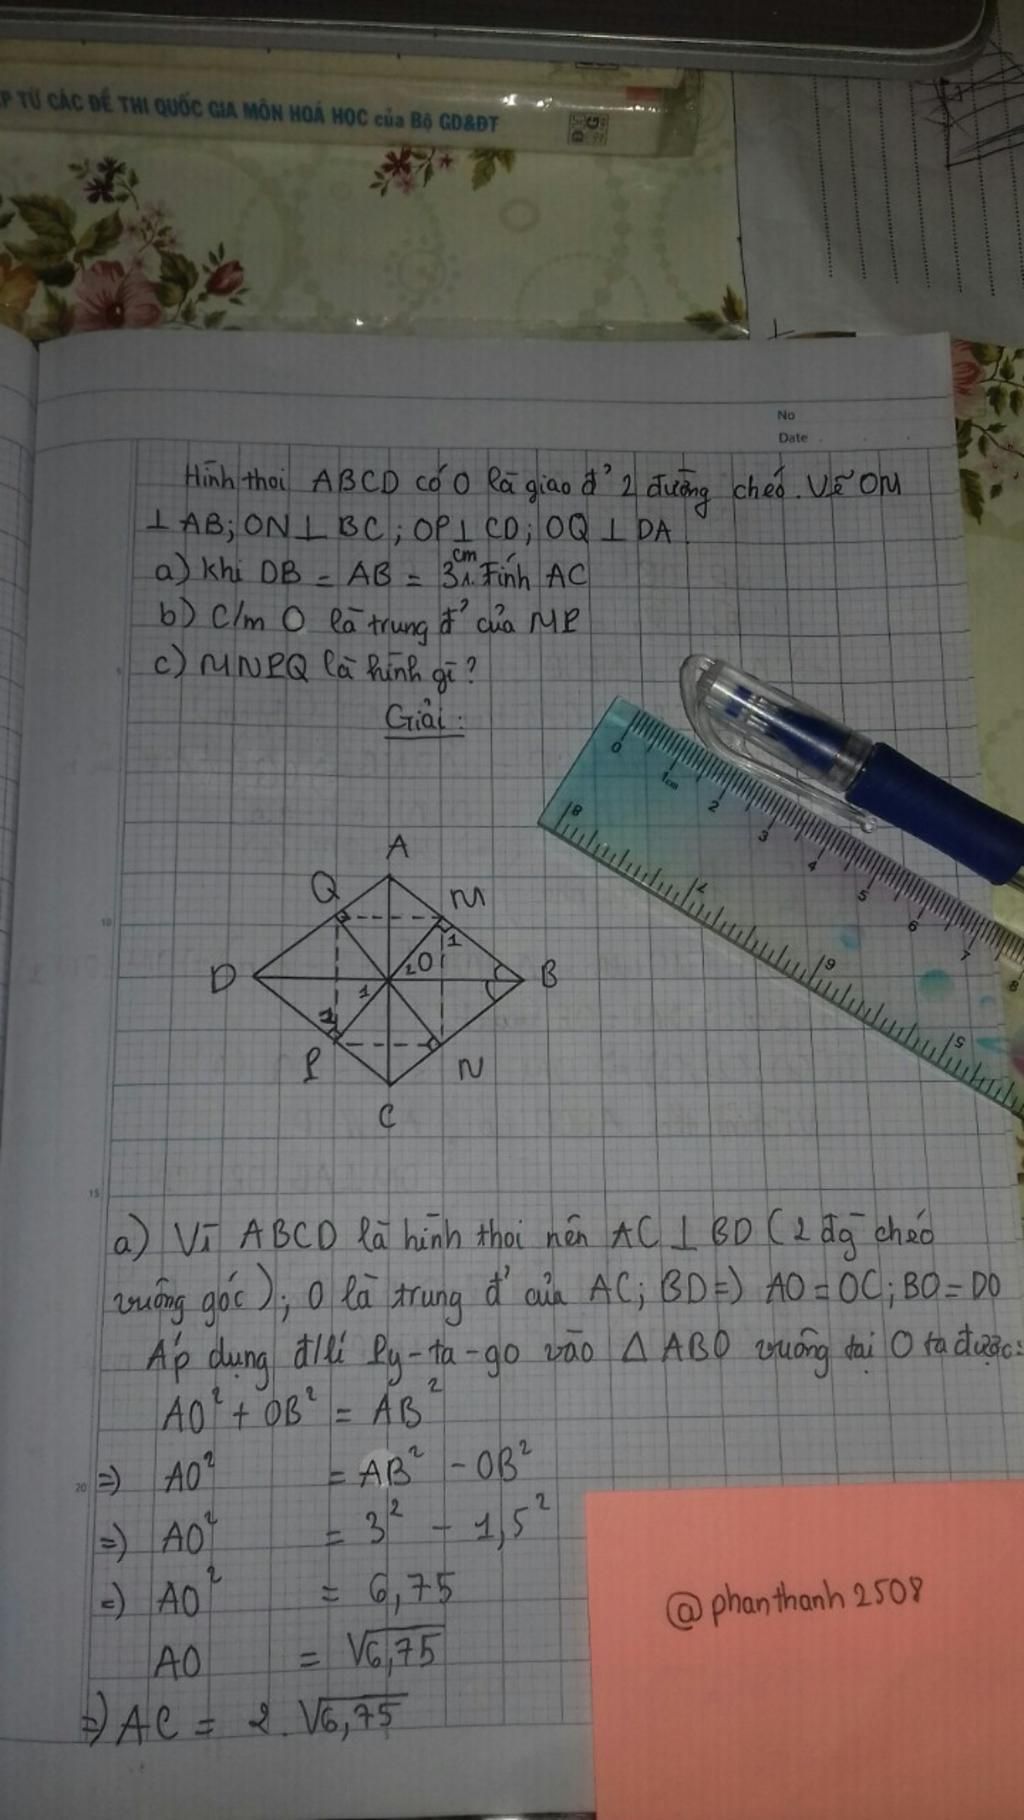 P TỪ CÁC ĐỀ THI QUỐC GIA MÔN HOÁ HỌC của Bộ GD&ĐT
No
Date
Hình thoi ABCD có O là giao đ' 2 đường chéo. Vẽ OM
⊥ AB; ON ⊥ BC; OP ⊥ CD; OQ ⊥ DA
a) khi DB = AB = 3cm. Tính AC
b) C/m O là trung đ' của MP
c) MNPQ là hình gì?
Giải:
A
Q M
1
D 2 O B
1
1
P N
C
0 1cm 2 3 4 5 6 7 8
8 7 6 5
10
15
20
a) Vì ABCD là hình thoi nên AC ⊥ BD (2 đg chéo
vuông góc); O là trung đ' của AC; BD => AO = OC; BO = DO
Áp dụng đ/lí Py-ta-go vào Δ ABO vuông tại O ta được:
AO² + OB² = AB²
=> AO² = AB² - OB²
=> AO² = 3² - 1,5²
=> AO² = 6,75
AO = √6,75
=> AC = 2.√6,75
@phanthanh2508